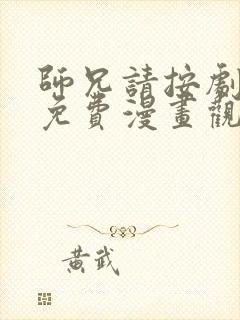 師兄請按劇
免費漫畫觀
黃武